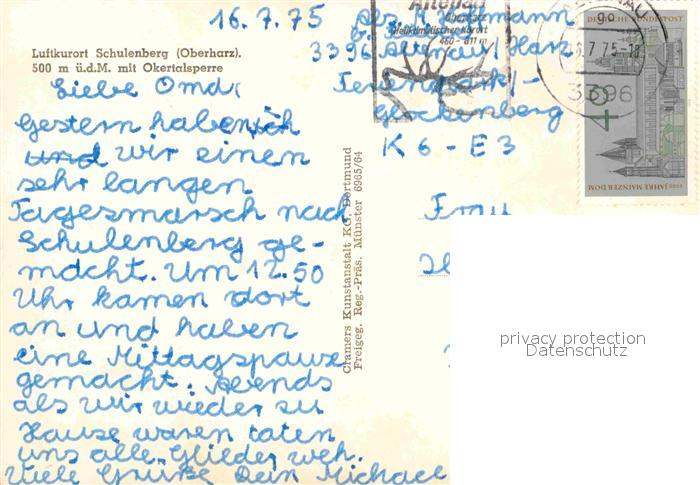 16.7.75
Luftkurort Schulenberg (Oberharz).
500 m ü.d.M. mit Okertalsperre
Liebe Oma,
Gestern haben ich
und wir einen
sehr langen
Tagesmarsch nach
Schulenberg ge-
macht. Um 12.50
Uhr kamen dort
an und haben
eine Mittagspause
gemacht. Abends
als wir wieder zu
Hause waren taten
uns alle Glieder weh.
Viele Grüße Dein Michael
Cramers Kunstanstalt KG, Dortmund
Freigeg. Reg.-Präs. Münster 6965/64
Abs. M.
3396 Altenau/Harz
Ferienpark/-
Glockenberg
K6-E3
Frau
Altenau
Oberharz
heilklimatischer Kurort
460-811 m
7.75-18
3396
DEUTSCHE BUNDESPOST
40
1000 JAHRE MAINZER DOM
privacy protection
Datenschutz